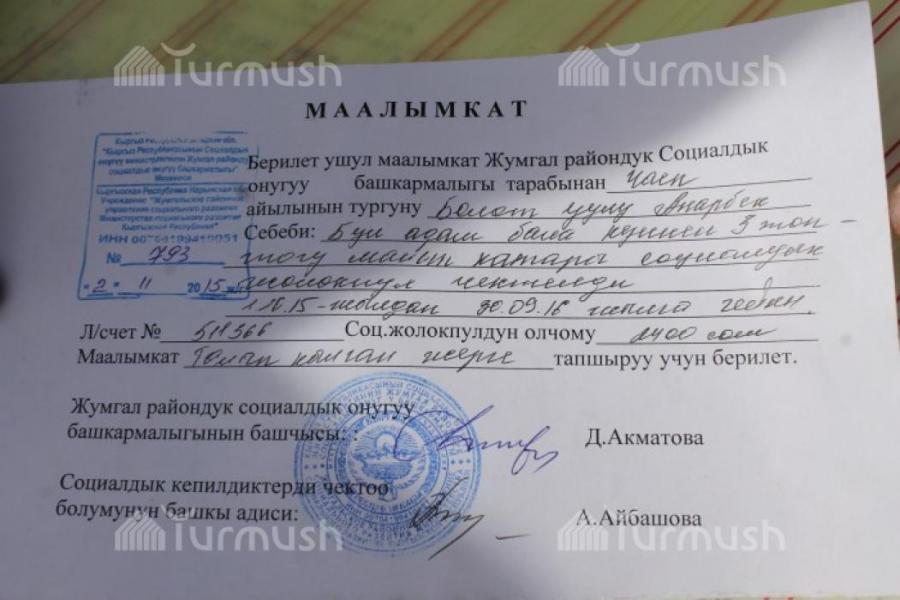 Turmush
Turmush
МААЛЫМКАТ
"Кыргыз Республикасынын Социалдык
онугуу министрлигинин Жумгал райондук
социалдык онугуу башкармалыгы"
Мекемеси
Кыргызская Республика Нарынская
Учреждение "Жумгальское районное
управление социального развития
Министерства социального развития
Кыргызской Республики"
ИНН
№ 793
"2" 11 2015
Берилет ушул маалымкат Жумгал райондук Социалдык
онугуу башкармалыгы тарабынан Чаек
айылынын тургуну Болот уулу Анарбек
Себеби: Бул адам бала кезинен 3 топ-
тогу майып катары социалдык
жолокпул чектелди
1.10.15-жылдан 30.09.16 жылга чейин.
Л/счет № 511366 Соц.жолокпулдун олчому 2400 сом
Маалымкат Талап кылган жерге тапшыруу учун берилет.
Жумгал райондук социалдык онугуу
башкармалыгынын башчысы: : Д.Акматова
Социалдык кепилдиктерди чектоо
болумунун башкы адиси: А.Айбашова
Turmush
Turmush